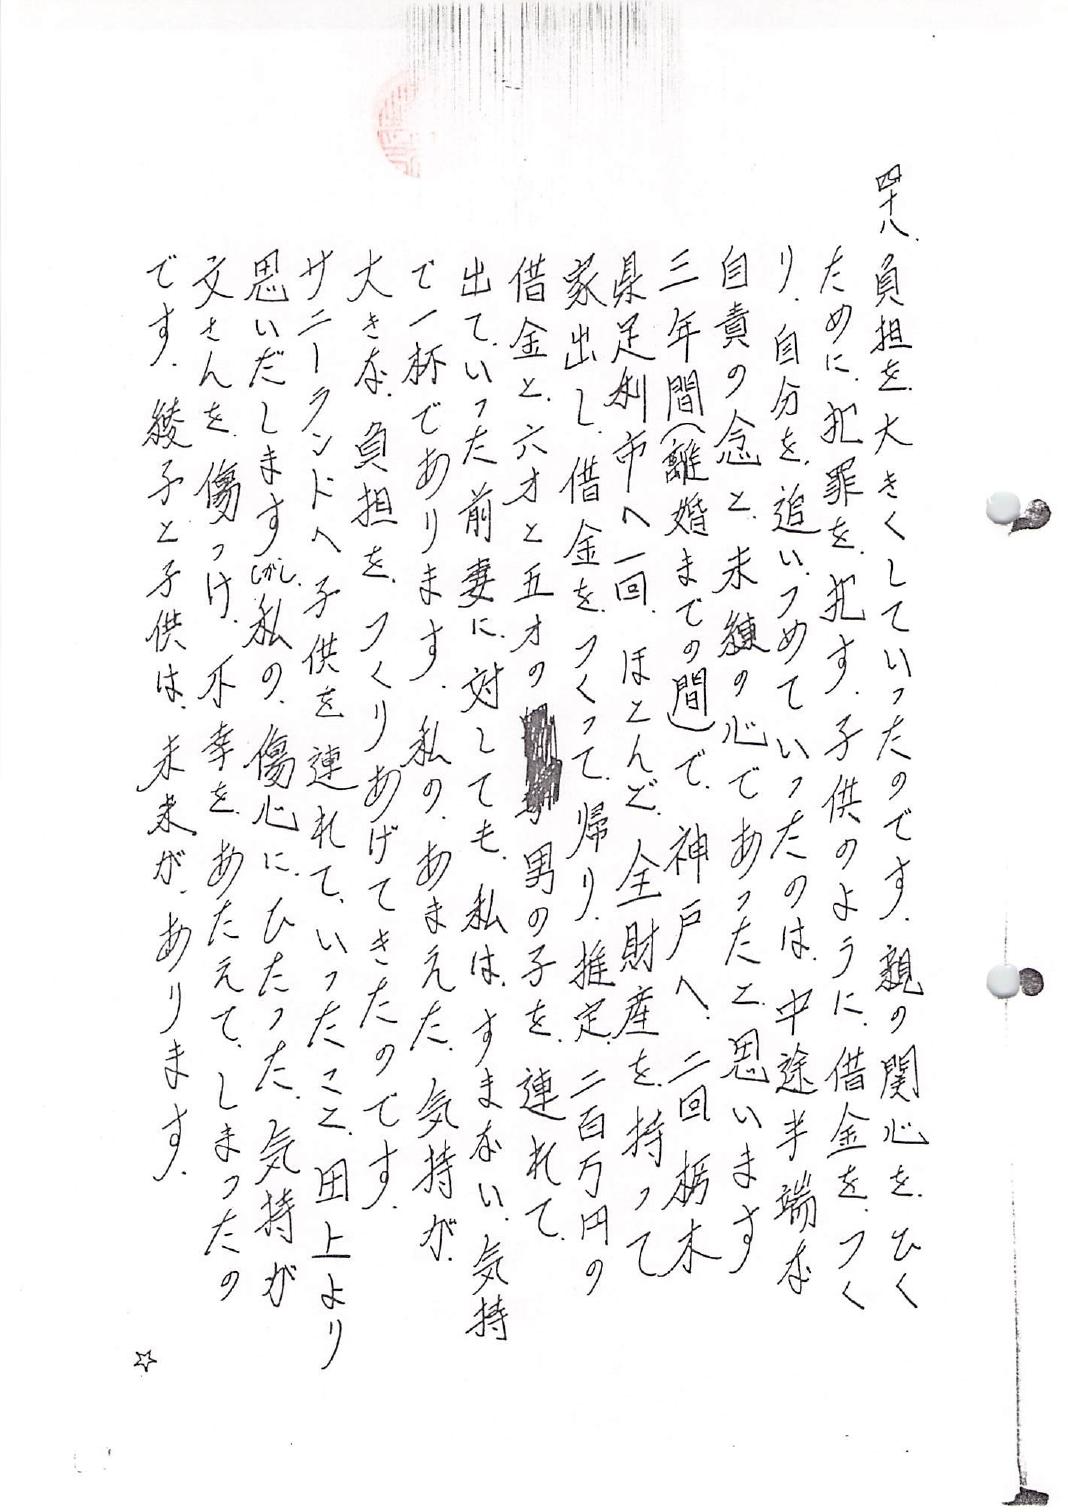 四十八、負担を、大きくしていったのです。親の関心を、ひく
ために、犯罪を、犯す、子供のように、借金を、つく
り、自分を、追いつめていったのは、中途半端な
自責の念と、未練の心であったと、思います
三年間(離婚までの間)で、神戸へ、二回栃木
県足利市へ一回、ほとんど、全財産を、持って
家出し、借金を、つくって、帰り、推定、二百万円の
借金と、六才と五才の男の子を、連れて、
出て、いった前妻に、対しても、私は、すまない、気持
で一杯であります。私の、あまえた、気持が、
大きな、負担を、つくりあげてきたのです。
サニーランドへ子供を連れて、いったこと、田上より
思いだしますしかし、私の、傷心に、ひたった、気持が
文さんを、傷つけ、不幸を、あたえて、しまったの
です。綾子と子供は、未来が、あります。
☆